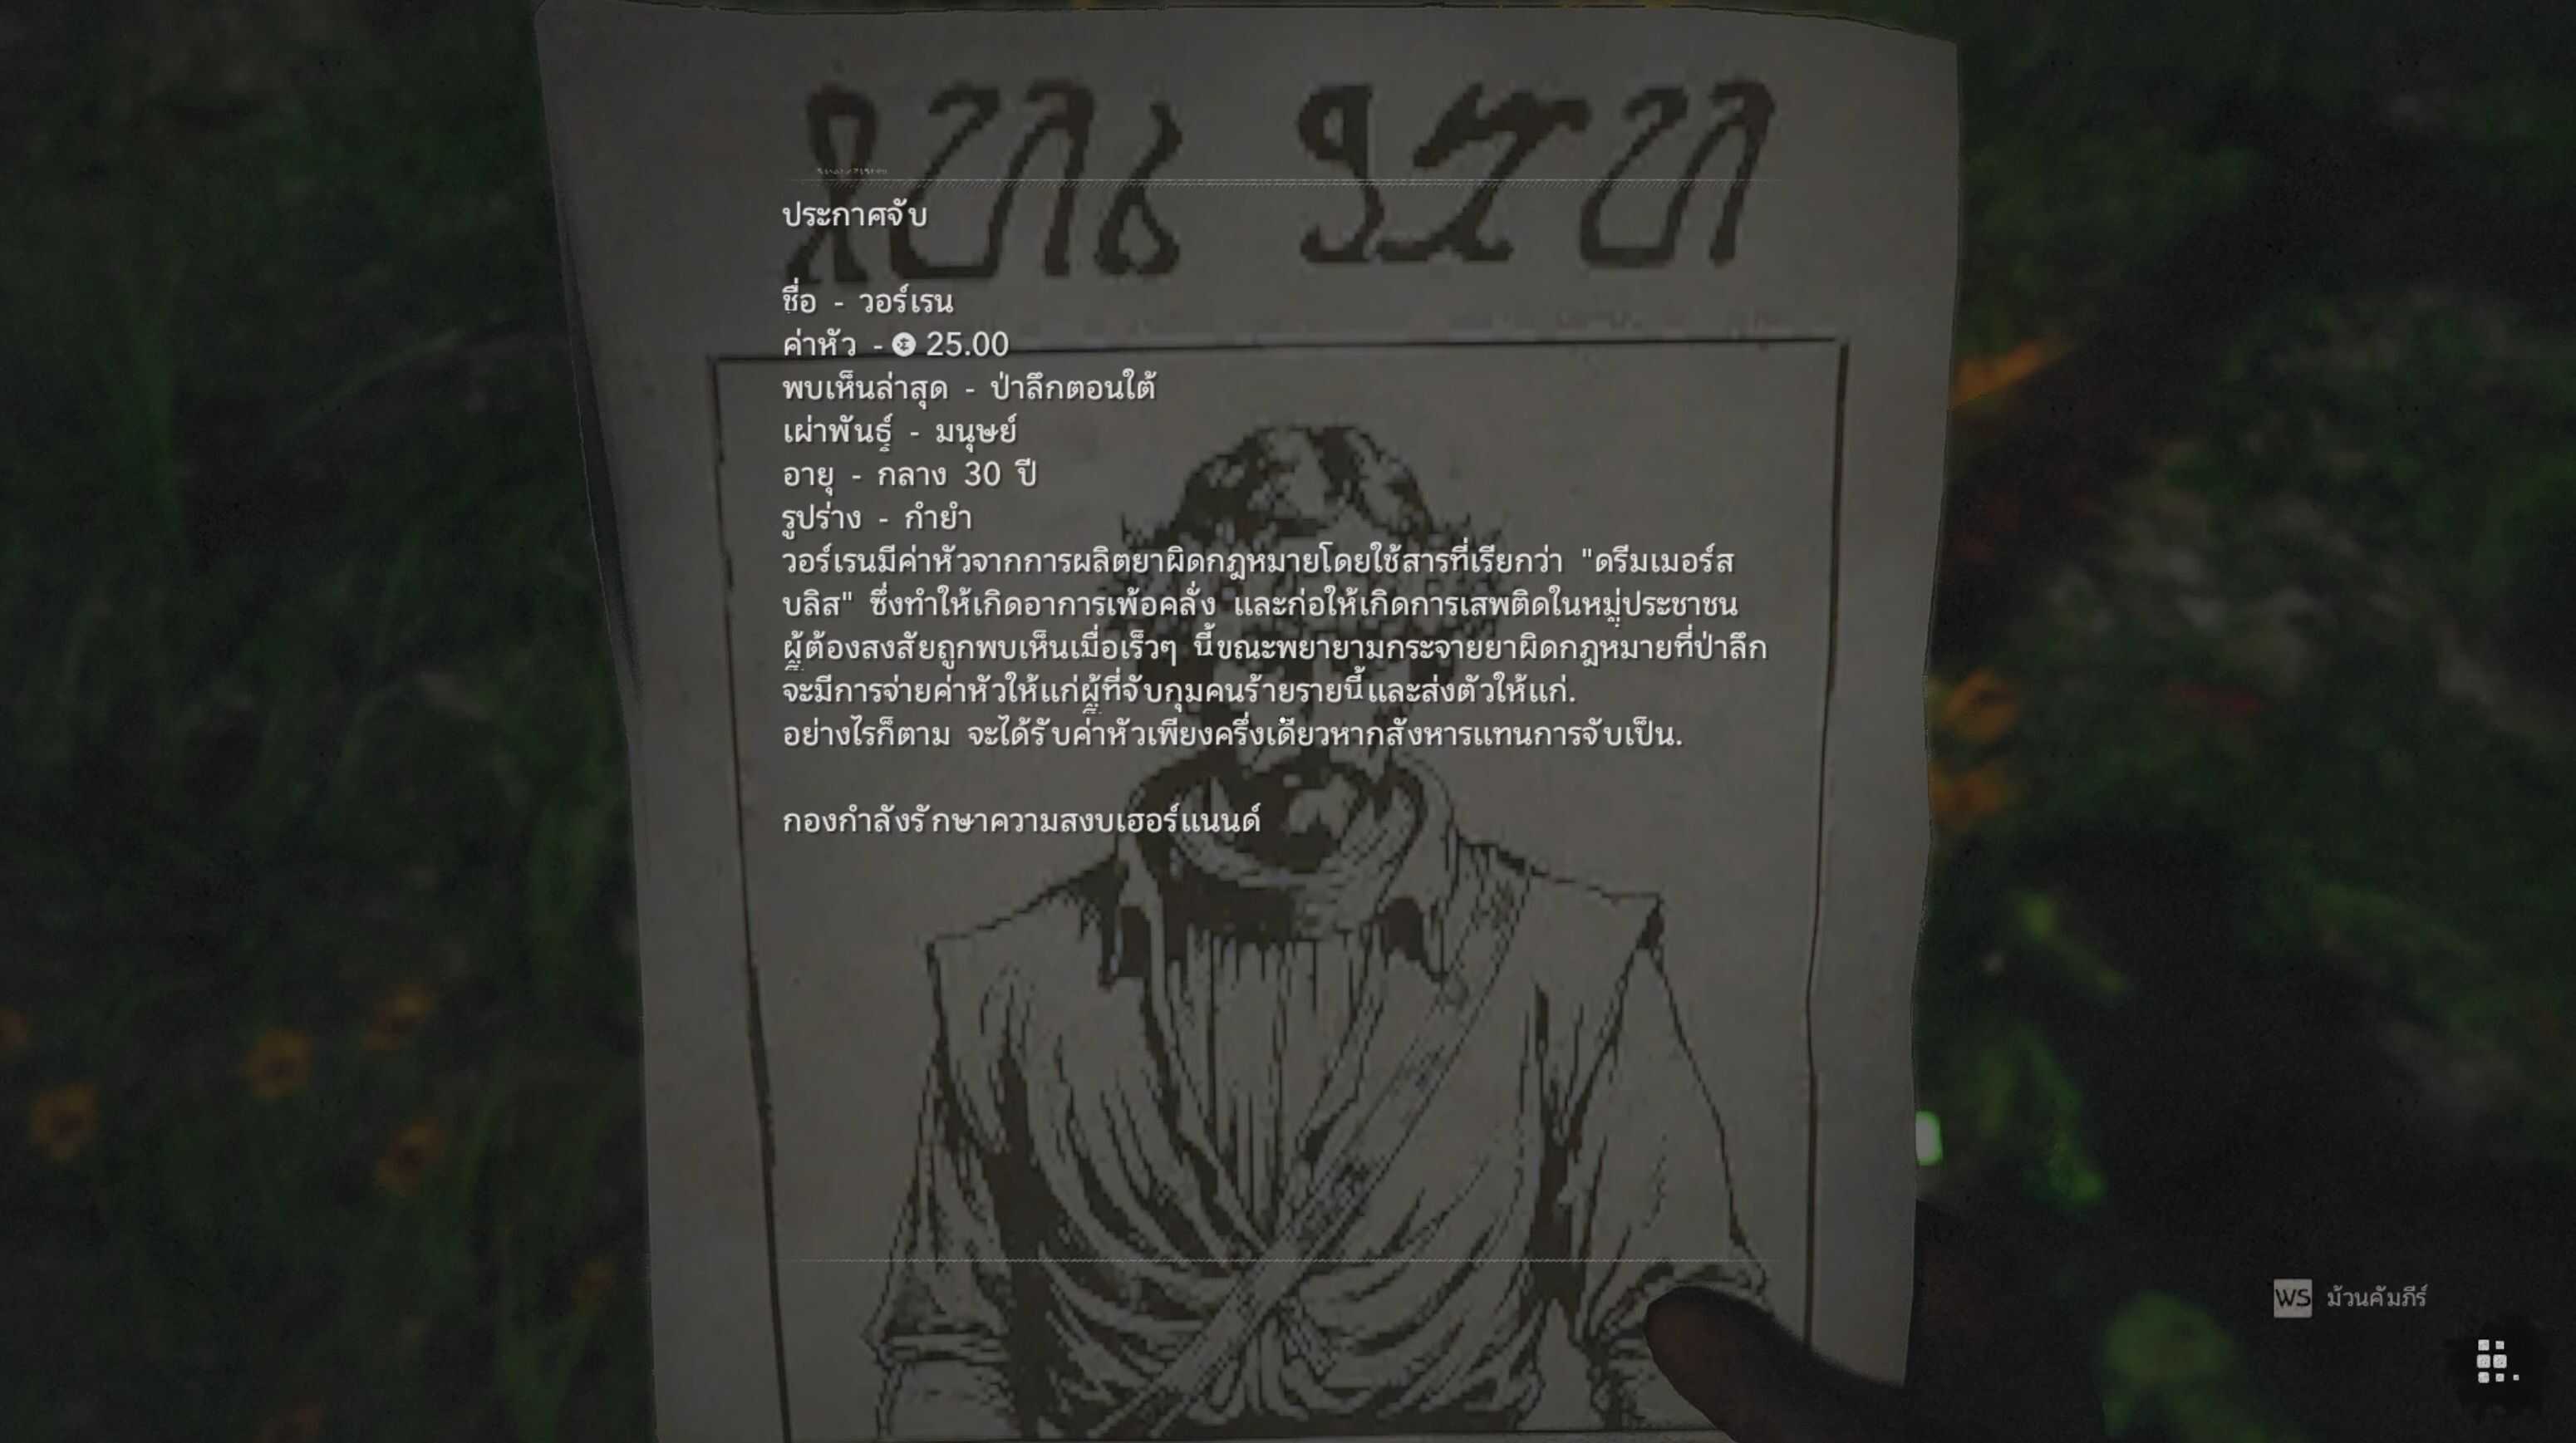 ประกาศจับ
ชื่อ - วอร์เรน
ค่าหัว - 25.00
พบเห็นล่าสุด - ป่าลึกตอนใต้
เผ่าพันธุ์ - มนุษย์
อายุ - กลาง 30 ปี
รูปร่าง - กำยำ
วอร์เรนมีค่าหัวจากการผลิตยาผิดกฎหมายโดยใช้สารที่เรียกว่า "ดรีมเมอร์ส
บลิส" ซึ่งทำให้เกิดอาการเพ้อคลั่ง และก่อให้เกิดการเสพติดในหมู่ประชาชน
ผู้ต้องสงสัยถูกพบเห็นเมื่อเร็วๆ นี้ขณะพยายามกระจายยาผิดกฎหมายที่ป่าลึก
จะมีการจ่ายค่าหัวให้แก่ผู้ที่จับกุมคนร้ายรายนี้และส่งตัวให้แก่.
อย่างไรก็ตาม จะได้รับค่าหัวเพียงครึ่งเดียวหากสังหารแทนการจับเป็น.
กองกำลังรักษาความสงบเฮอร์แนนด์
WS ม้วนคัมภีร์